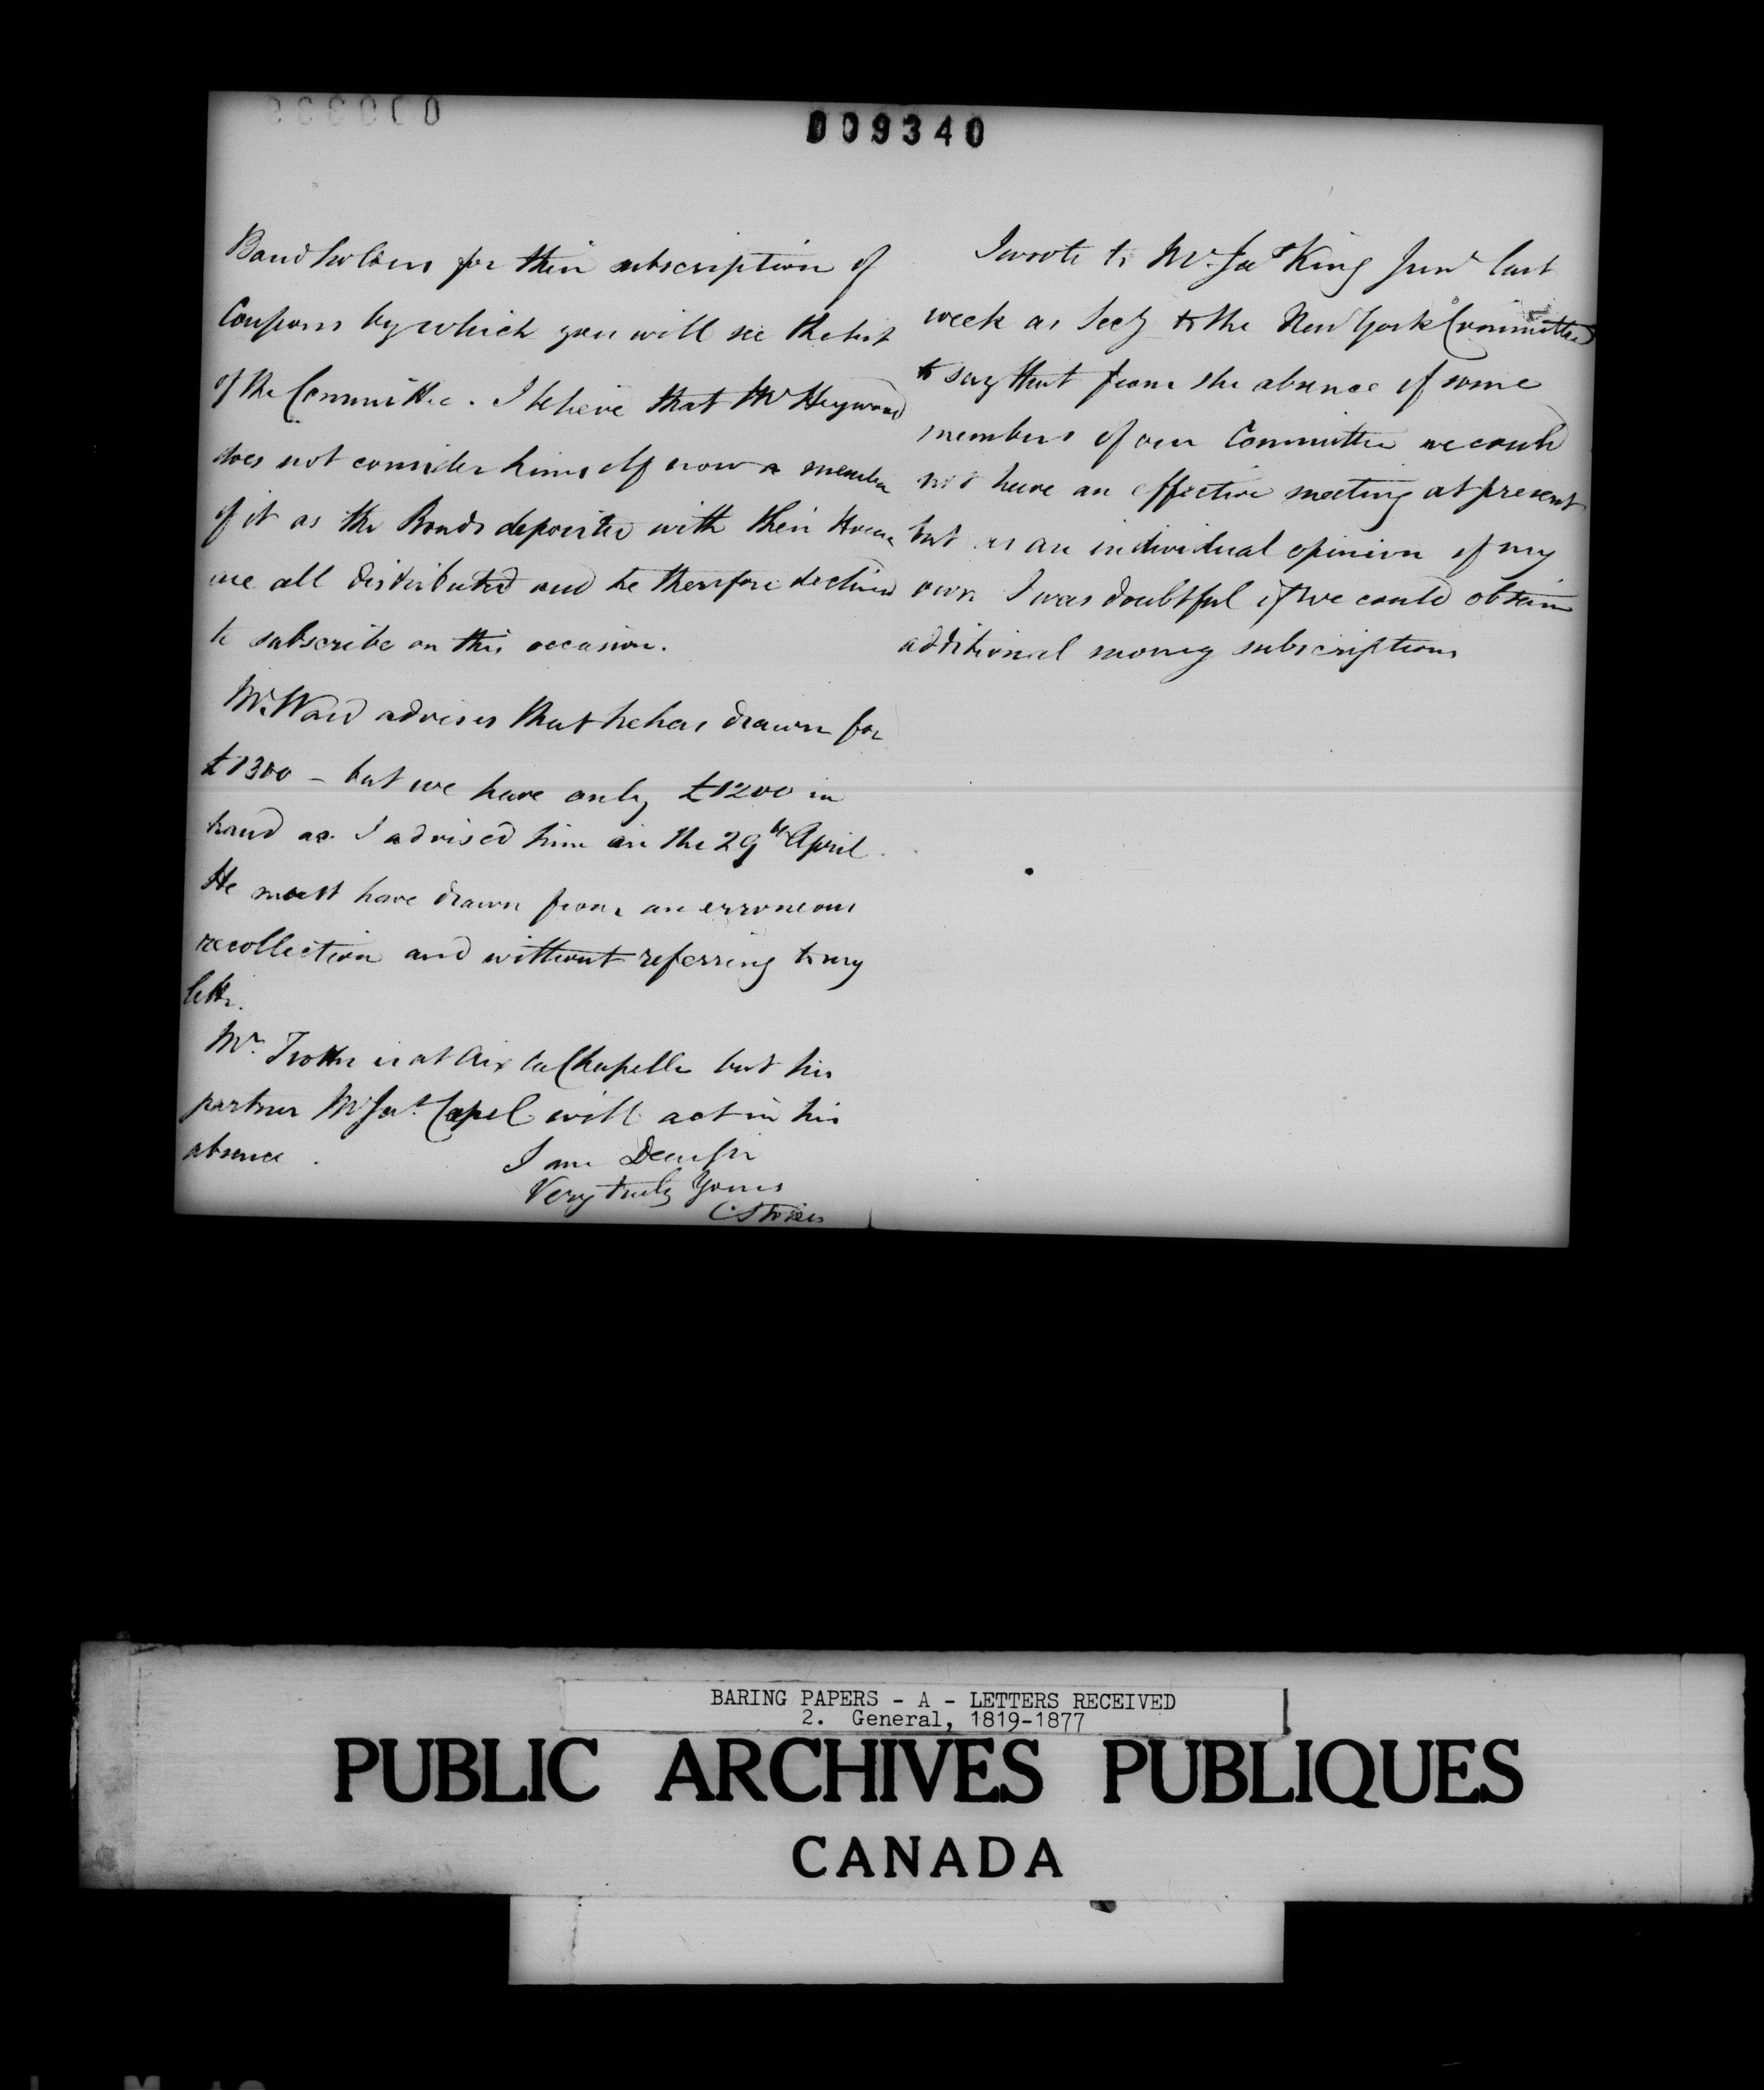 009340
Bondholders for their subscription of
Coupons by which you will see the list
of the Committee. I believe that Mr Heywood
does not consider himself now a member
of it as the Bonds deposited with their House
are all distributed and he therefore declined
to subscribe on this occasion.
Mr. Ward advises that he has drawn for
£1300 – but we have only £1200 in
hand as I advised him on the 29th April.
He must have drawn from an erroneous
recollection and without referring to my
letter.
Mr. Trotter is at Aix la Chapelle but his
partner Mr Jas. Capel will act in his
absence.
I am Dear Sir
Very truly Yours
C Stokes
I wrote to Mr. Jas King Junr last
week as Secy to the New York Committee
to say that from the absence of some
members of our Committee we could
not have an effective meeting at present
but as an individual opinion of my
own I was doubtful if we could obtain
additional money subscriptions
BARING PAPERS - A - LETTERS RECEIVED
2. General, 1819-1877
PUBLIC ARCHIVES PUBLIQUES
CANADA